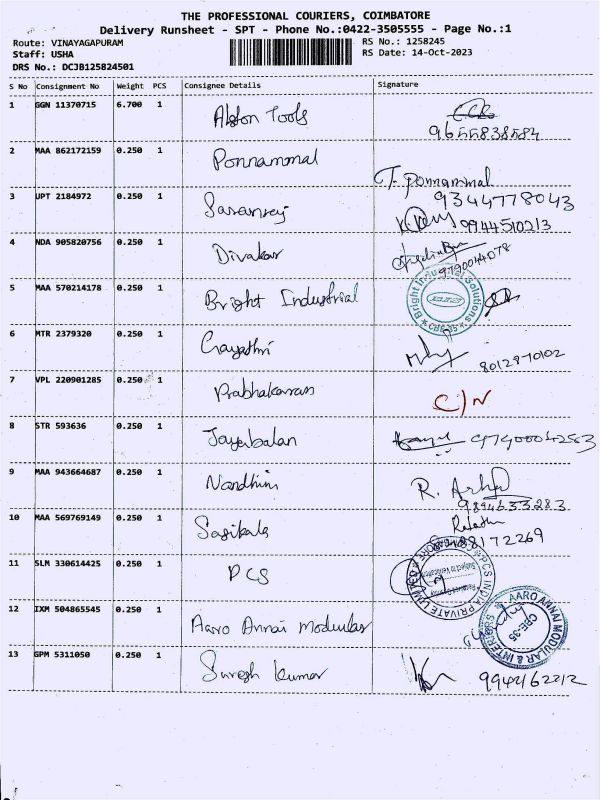 THE PROFESSIONAL COURIERS, COIMBATORE
Delivery Runsheet - SPT - Phone No.:0422-3505555 - Page No.:1
Route: VINAYAGAPURAM RS No.: 1258245
Staff: USHA RS Date: 14-Oct-2023
DRS No.: DCJB125824501
S No Consignment No Weight PCS Consignee Details Signature
1 GGN 11370715 6.700 1 Alston Tools
9655838584
2 MAA 862172159 0.250 1 Ponnammal
T. ponnammal
9344778043
3 UPT 2184972 0.250 1 Saranraj
9944510213
4 NDA 905820756 0.250 1 Divakar
9790044078
5 MAA 570214178 0.250 1 Bright Industrial
Bright Industrial Solutions
CBE-35
6 MTR 2379320 0.250 1 Gayathri
8012970102
7 VPL 220901285 0.250 1 Prabhakaran C/N
8 STR 593636 0.250 1 Jayabalan
9 MAA 943664687 0.250 1 Nandhini R.
9894633283
10 MAA 569769149 0.250 1 Sasikala
88172269
11 SLM 330614425 0.250 1 PCS
PCS INDIA PRIVATE LIMITED
Subject to Verification
12 IXM 504865545 0.250 1 Aaro Annai Modular
AARO ANNAI MODULAR & INTERIORS
CBE-35
13 GPM 5311050 0.250 1 Suresh kumar
9942162212